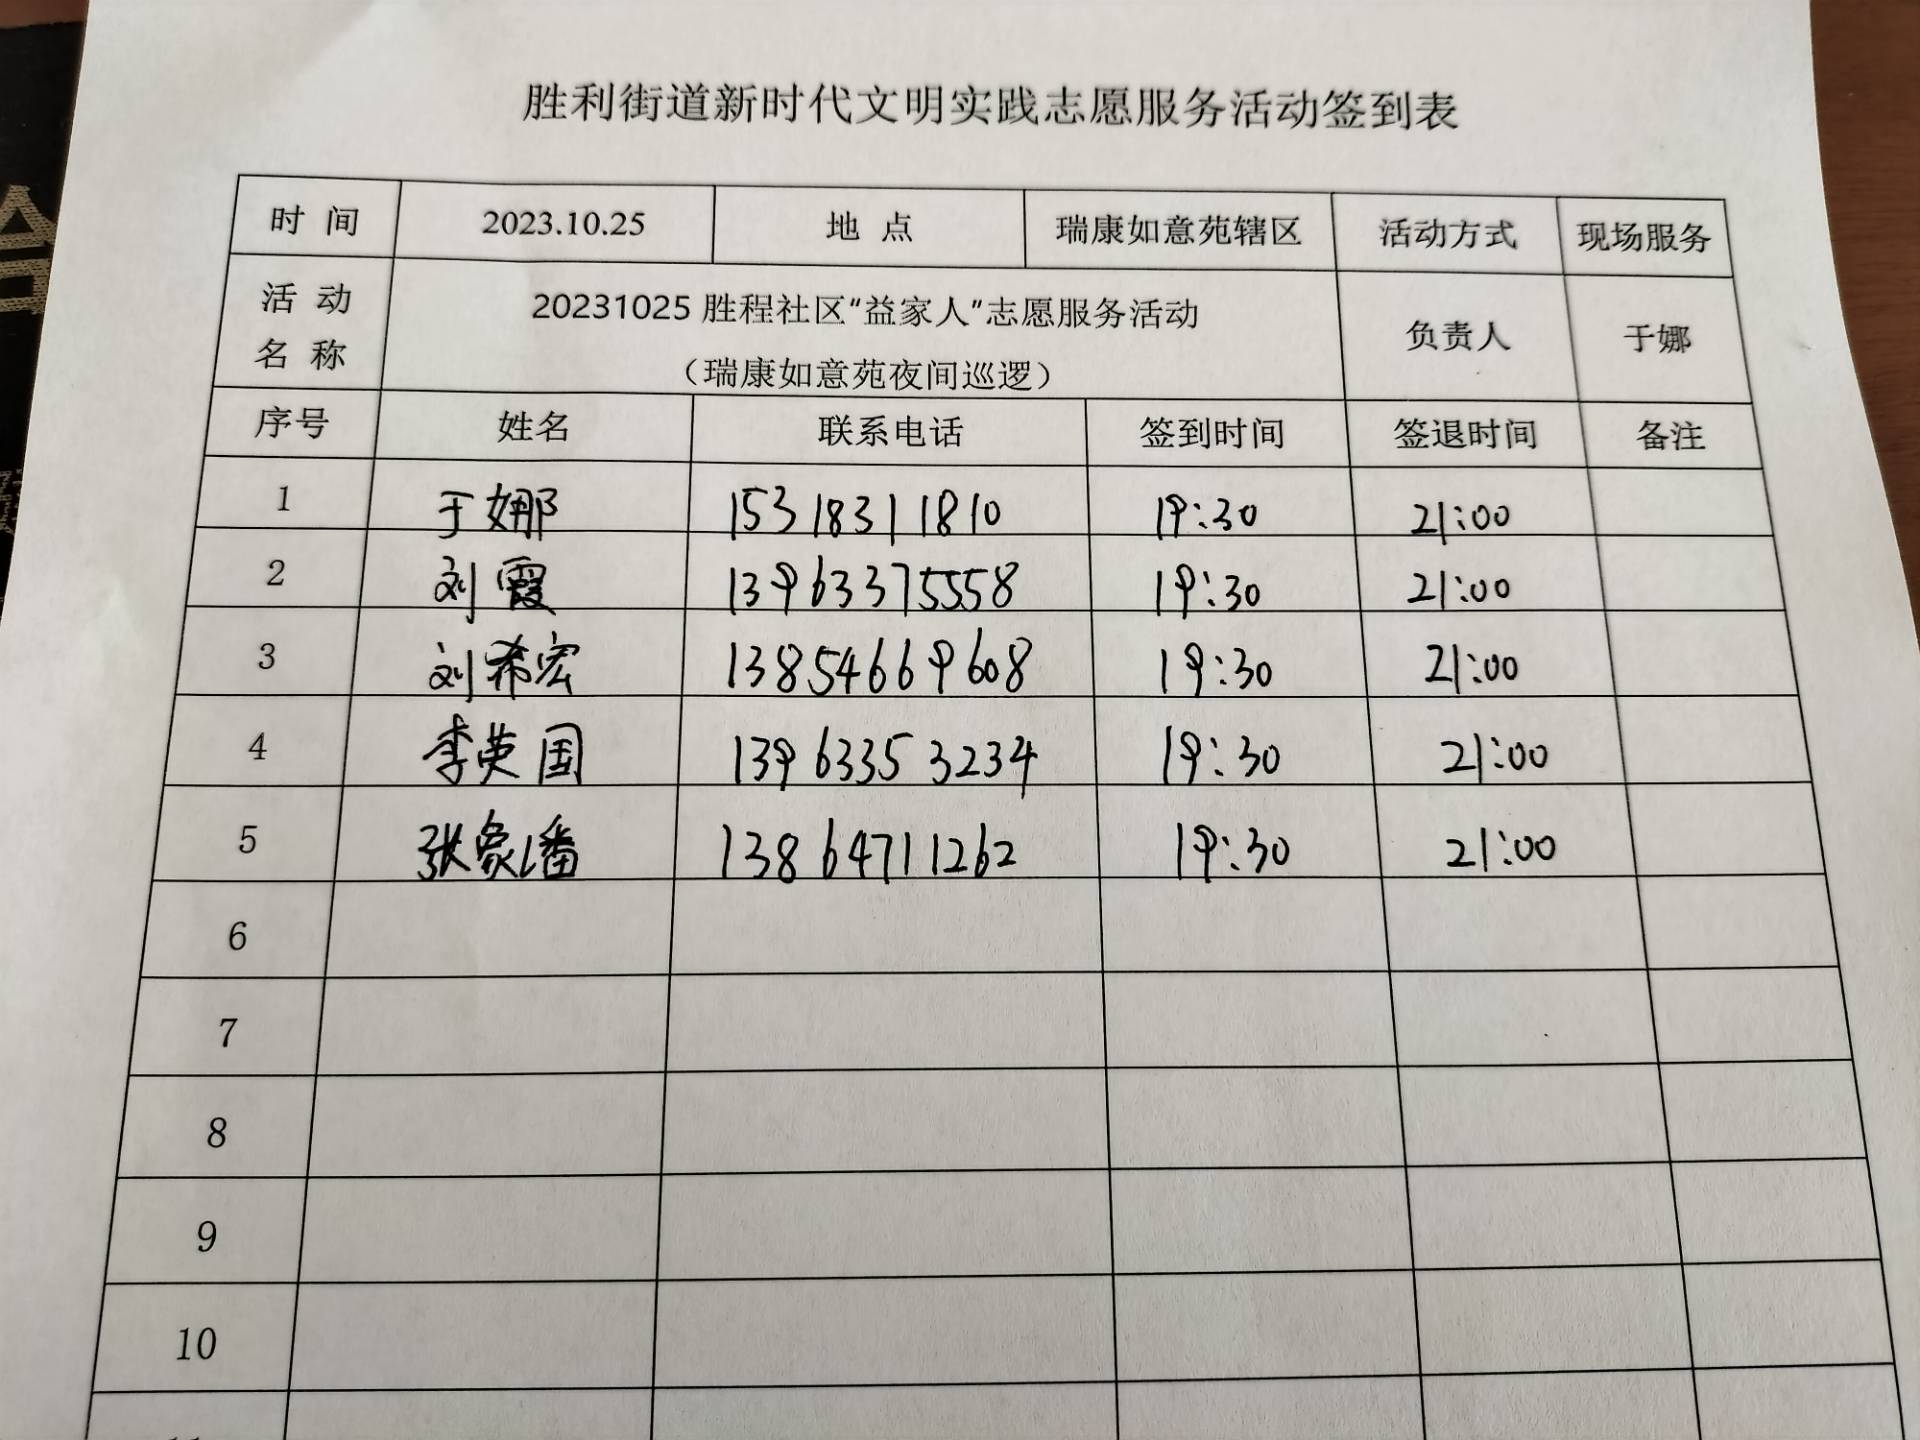 胜利街道新时代文明实践志愿服务活动签到表
时 间 2023.10.25 地 点 瑞康如意苑辖区 活动方式 现场服务
活 动 名 称 20231025 胜程社区“益家人”志愿服务活动 负责人 于娜
（瑞康如意苑夜间巡逻）
序号 姓名 联系电话 签到时间 签退时间 备注
1 于娜 15318311810 19:30 21:00
2 刘霞 13963375558 19:30 21:00
3 刘希宏 13854669608 19:30 21:00
4 李英国 13963353234 19:30 21:00
5 张家潘 13864711262 19:30 21:00
6
7
8
9
10